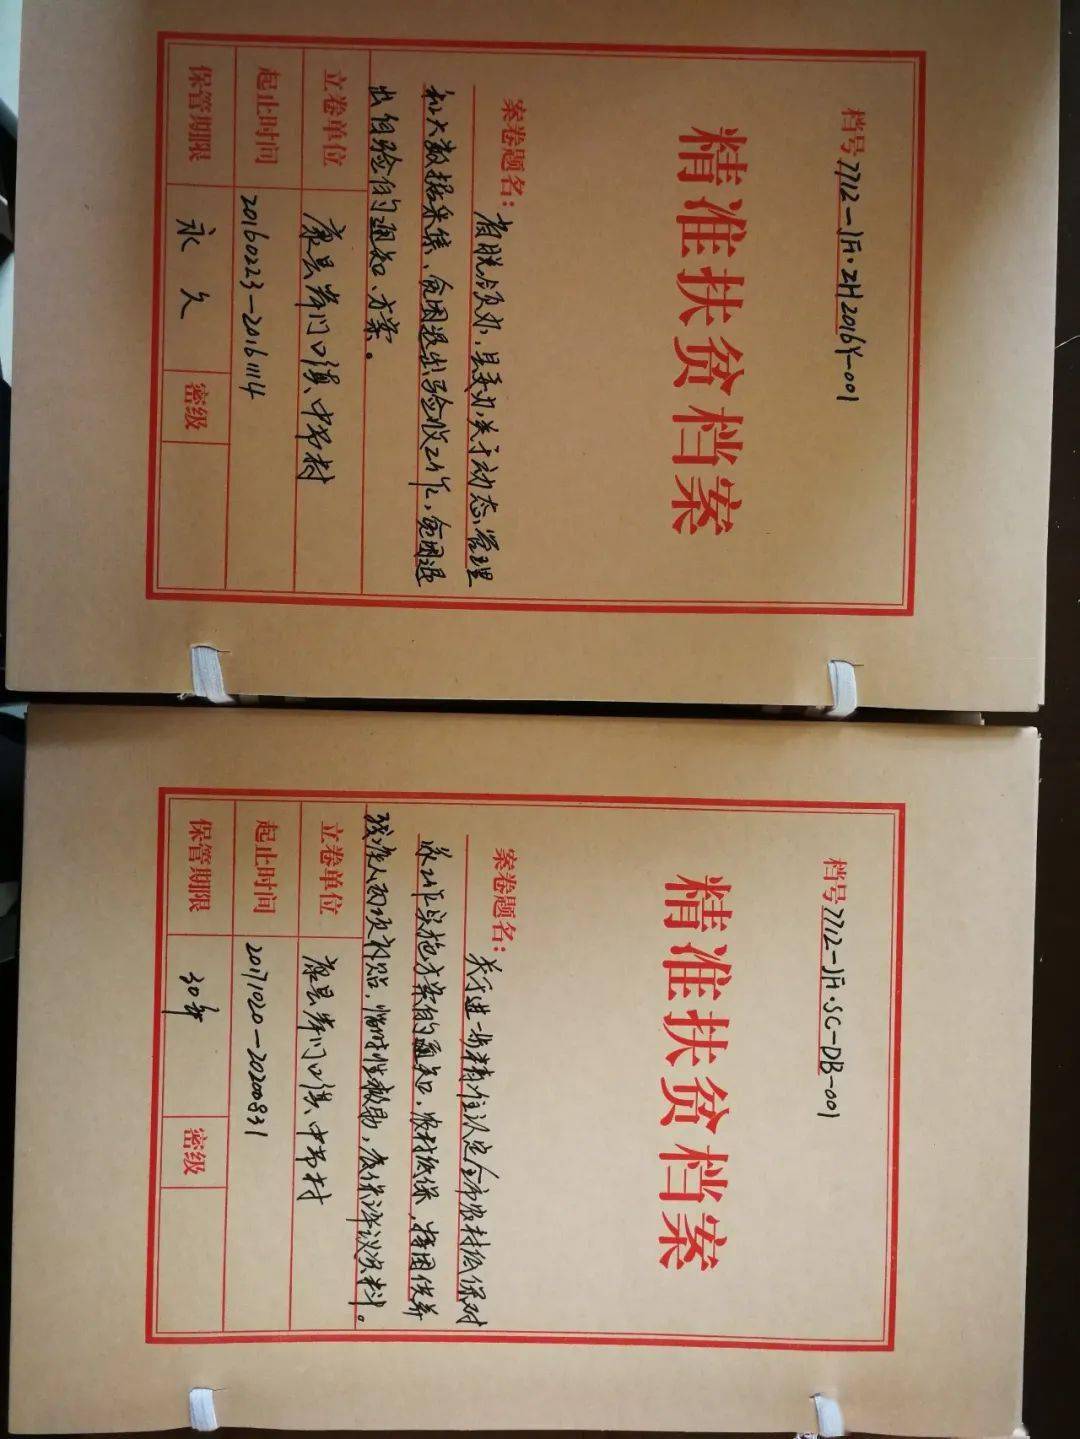 档号7712-JF·ZH2016Y-001
精准扶贫档案
案卷题名：省脱贫领办、县委办，关于动态管理
和大数据采集、贫困退出验收工作，贫困退
出经验的通知、方案。
立卷单位 康县岸门口镇中节村
起止时间 20160223-20161114
保管期限 永久 密级
档号7712-JF·SC-DB-001
精准扶贫档案
案卷题名：关于进一步精准认定全市农村低保对
象工作实施方案的通知，农村低保，特困供养
残疾人两项补贴，临时性救助，低保评议资料。
立卷单位 康县岸门口镇中节村
起止时间 20171020-20200831
保管期限 30年 密级